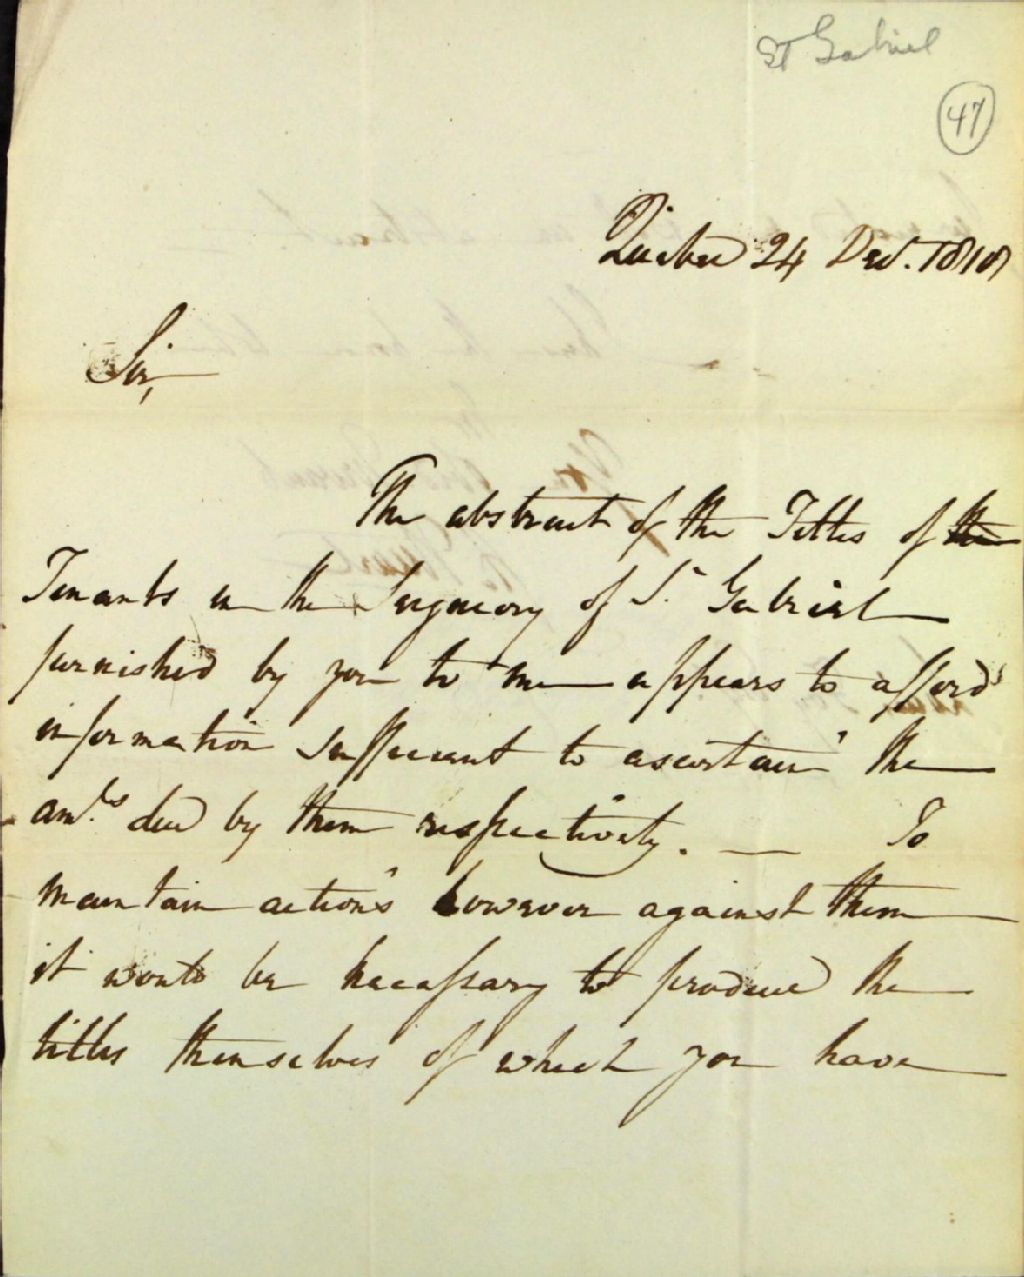 St Gabriel
47
Quebec 24 Decr. 1818
Sir,
The abstract of the Titles of the
Tenants in the Seigneory of St. Gabriel
furnished by you to me appears to afford
information sufficient to ascertain the
amts due by them respectively. — To
maintain actions however against them
it would be necessary to produce the
titles themselves of which you have